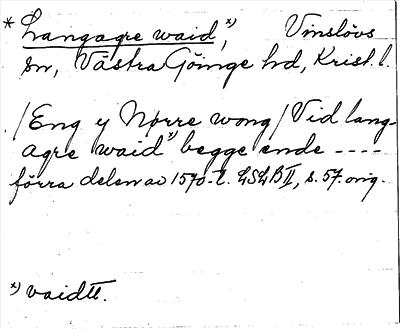 * Langagre waid, *) Vinslövs
sn, Västra Göinge hd, Krist. l.
/Eng y Nørre wong/ Vid lang-
agre waid *) begge ende ----
förra delen av 1570-t. LSLB II, s. 57. orig.
*) vaidtt.